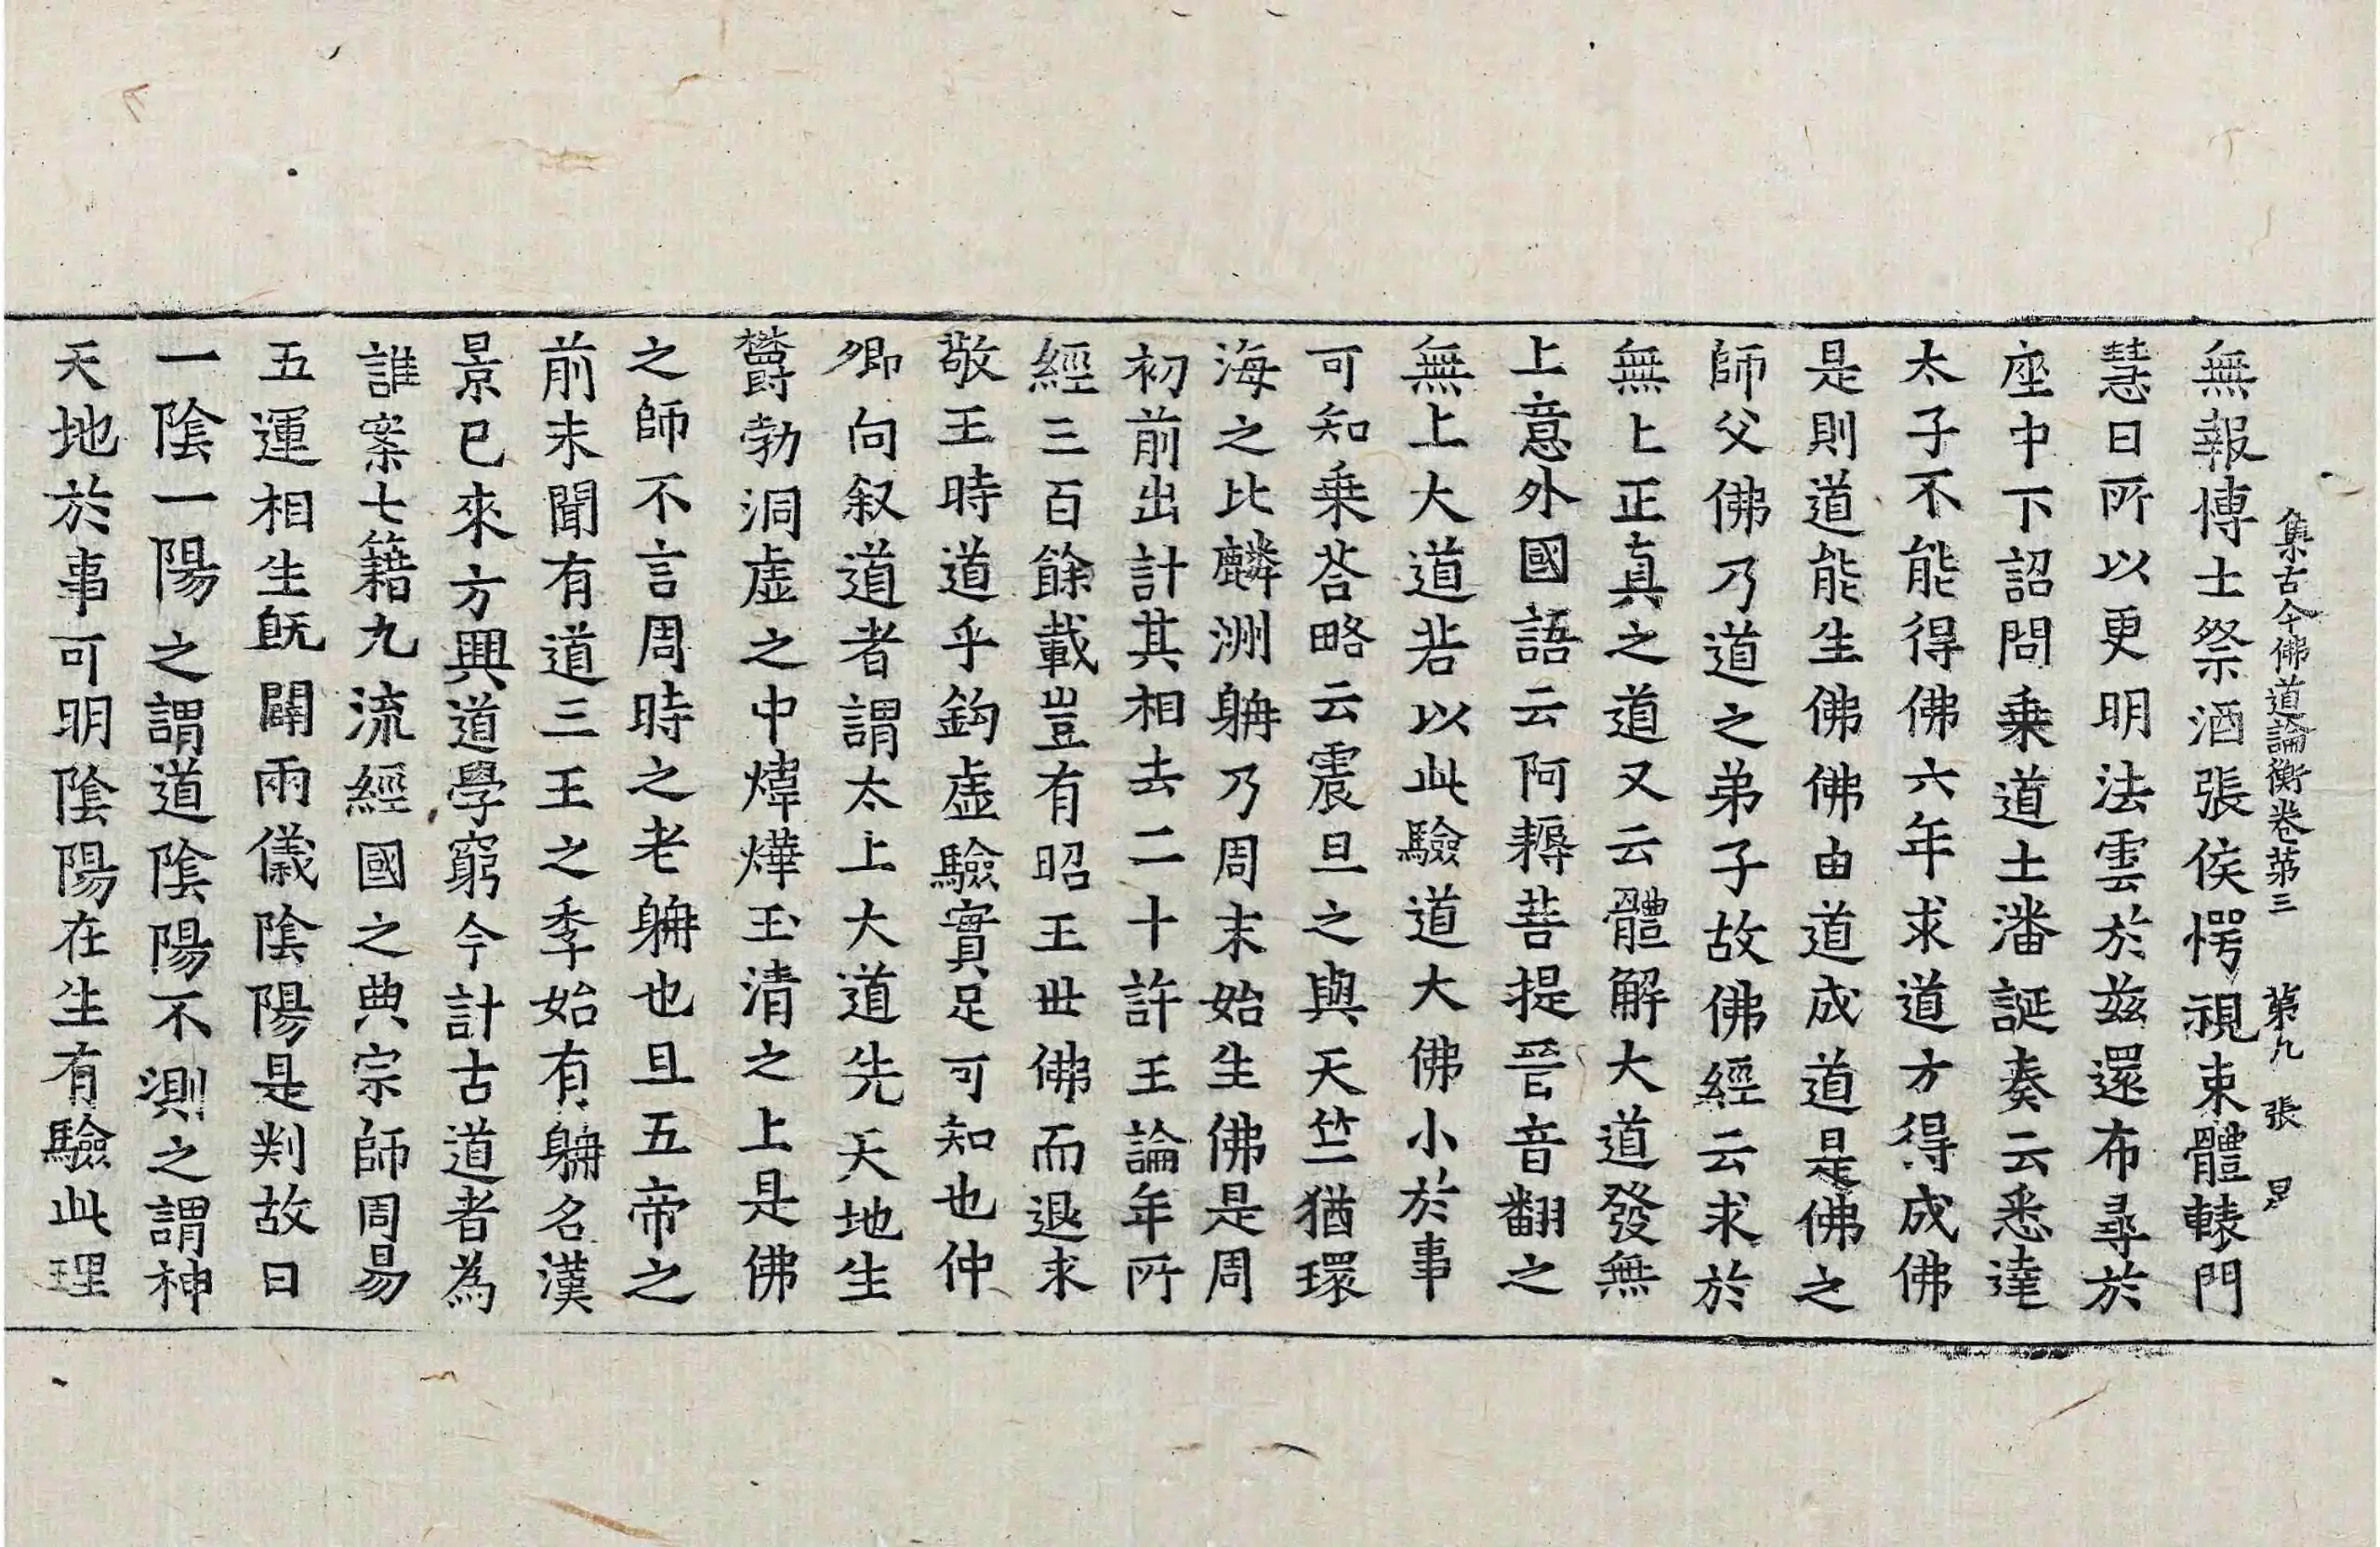 集古今佛道論衡卷苐三 第九張 㫖
無報愽士祭酒張侯愕視束體轅門
慧日所以更明法雲於兹還布尋於
座中下詔問乗道士潘誕奏云悉達
太子不能得佛六年求道方得成佛
是則道能生佛佛由道成道是佛之
師父佛乃道之弟子故佛經云求於
無上正真之道又云體解大道發無
上意外國語云阿耨菩提晉音翻之
無上大道若以此驗道大佛小於事
可知乗荅略云震旦之與天竺猶環
海之比麟洲躭乃周末始生佛是周
初前出計其相去二十許王論年所
經三百餘載豈有昭王丗佛而退求
敬王時道乎鈎虛驗實足可知也仲
卿向叙道者謂太上大道先天地生
欝勃洞虛之中煒燁玉清之上是佛
之師不言周時之老躭也且五帝之
前未聞有道三王之季始有躭名漢
景已來方興道學窮今計古道者為
誰案七籍九流經國之典宗師周易
五運相生旣闢兩儀陰陽是判故曰
一陰一陽之謂道陰陽不測之謂神
天地於事可明陰陽在生有驗此理